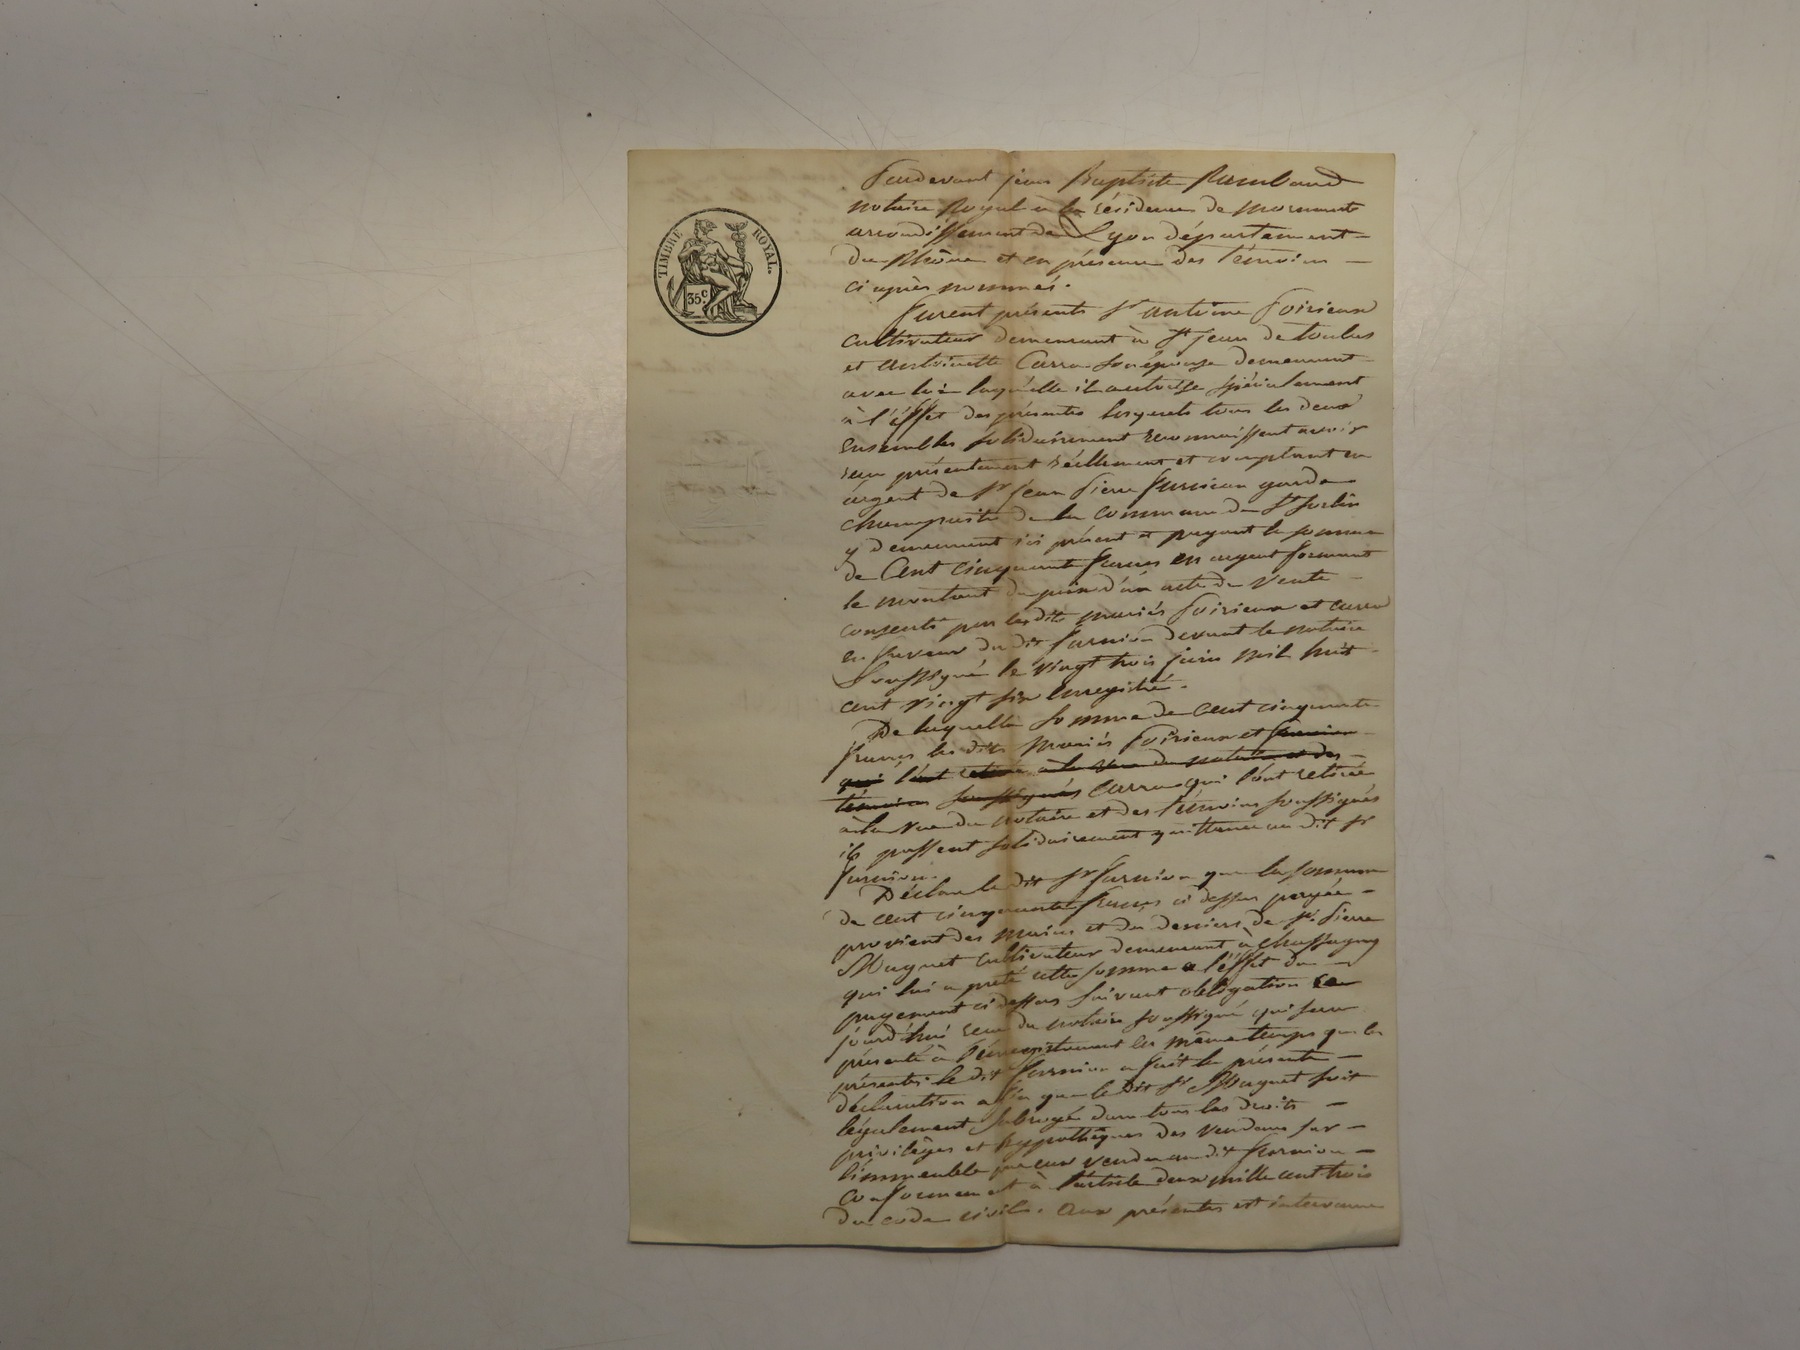 TIMBRE ROYAL.
35c.
Pardevant jean Baptiste Rambaud
notaire Royal à la résidence de mornant
arrondissement de Lyon département
du Rhône et en présence des témoins
ci après nommés.
furent présents Sr antoine Poirieux
cultivateur demeurant à St jean de toulas
et antoinette Carra son épouse demeurant
avec lui laquelle il autorise spécialement
à l'éffet des présentes lesquels tous les deux
ensembles solidairement reconnaissent avoir
reçu présentement réellement et comptant en
argent de Sr jean Pierre furnion garde
champaitre de la commune de St Sorlin
y demeurant ici présent et payant la somme
de Cent cinquante francs en argent formant
le montant du prix d'un acte de vente
consenti par les dits mariés Poirieux et carra
en faveur du dit furnion devant le notaire
soussigné le vingt trois juin mil huit
cent vingt six enregistré.
De laquelle somme de Cent cinquante
francs les dits mariés Poirieux et furnion
qui l'ont retirée à la vue du notaire et des
témoins soussignés Carra qui l'ont retirée
à la vue du notaire et des témoins soussignés
ils passent solidairement quittance au dit Sr
furnion.
Déclare le dit Sr furnion que la somme
de cent cinquante francs ci dessus payée
provient des mains et des deniers de Sr Pierre
Maguet cultivateur demeurant à chassagny
qui lui a prêté cette somme a l'éffet du
payement ci dessus suivant obligation ce
jourd'hui reçue du notaire soussigné qui sera
présenté à l'énregistrement en même temps que les
présentes le dit furnion a fait la présente
déclaration afin que le dit Sr Maguet soit
légalement subrogé dans tous les droits
privilèges et hypothèques des vendeurs sur
l'immeuble par eux vendu au dit furnion
conformement à l'article deux mille cent trois
du code civile. Aux présentes est intervenu